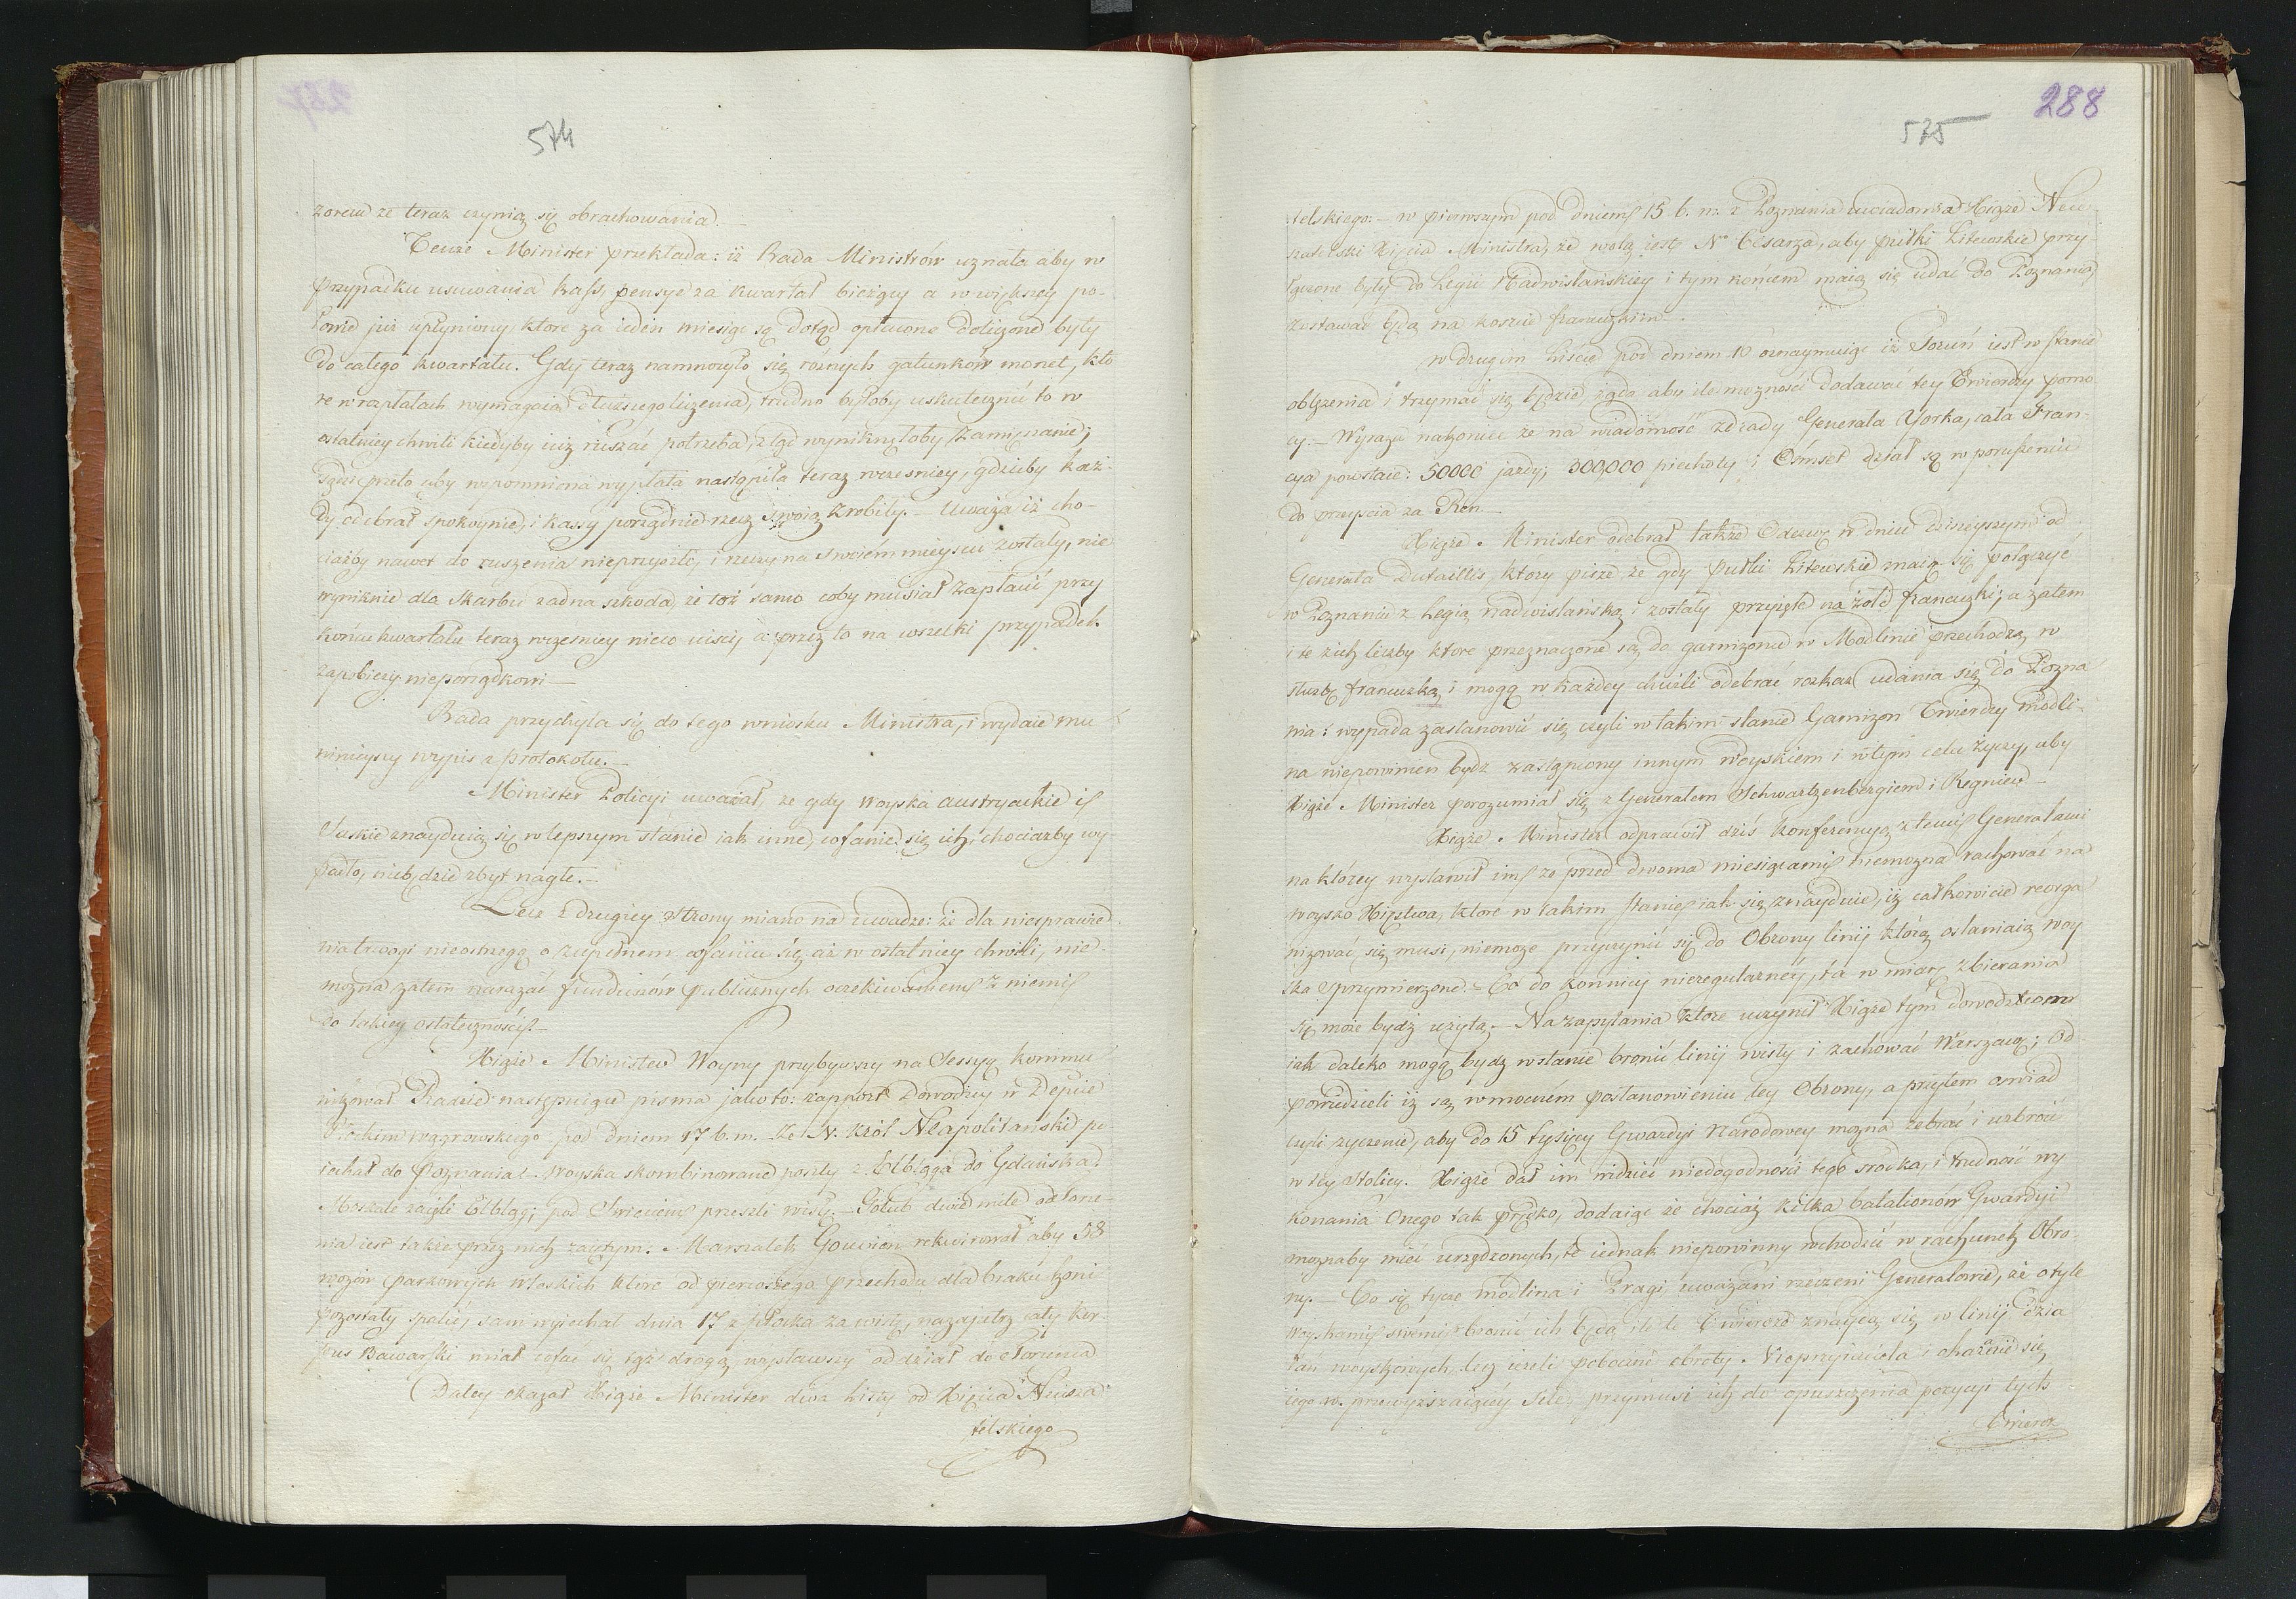 574
zorem że teraz czynią się obrachowania.
Tenże Minister przekłada: iż Rada Ministrów uznała aby w
przypadku usuwania kass, pensye za kwartał bieżący a w większey po-
łowie już upłyniony, które za ieden miesiąc są dotąd opłacone doliczone były
do całego kwartału. Gdy teraz namnożyło się różnych gatunków monet, któ
re w rozpłatach wymagaią dłuższego liczenia, trudno byłoby uskutecznić to w
ostatniey chwili kiedyby iuż ruszać potrzeba, zkąd wyniknęłoby zamięszanie;
sądzi przeto aby wspomniona wypłata nastąpiła teraz wcześniey, gdzieby każ-
dy odebrał spokoynie, i kassy porządnie rzecz swoią zrobiły. — Uważa iż cho-
ciażby nawet do ruszenia nieprzyszło, i rzeczy na swoiém mieyscu zostały, nie
wyniknie dla Skarbu żadna szkoda, że toż samo coby musiał zapłacić przy
końcu kwartału teraz wcześniey nieco uiści, a przez to na wszelki przypadek
zapobieży nieporządkowi —
Rada przychyla się do tego wniosku Ministra, i wydaie mu
ninieyszy wypis z protokołu. —
Minister Policyi uważał, że gdy woyska austryackie i
Saskie znayduią się w lepszym stanie iak inne, cofanie się ich, chociażby wy-
padło, niebędzie zbyt nagłe. —
Lecz z drugiey strony miano na uwadze: że dla niesprawie
nia trwogi nieostrzegą o zupełnem cofaniu się aż w ostatniey chwili, nie-
można zatem narażać funduszów publicznych oczekiwaniem z niemi
do takiey ostateczności. —
Xiąże Minister Woyny przybywszy na Sessyę kommu
nikował Radzie następuiące pisma jakoto: rapport Dowodzcy w Depcie
Płockim Wągrowskiego pod dniem 17 b. m. że N. Król Neapolitański po
iechał do Poznania. Woyska skombinowane poszły z Elbląga do Gdańska.
Moskale zaięli Elbląg; pod Świeciem przeszli wisłę. — Gołub dwie mile od Toru-
nia iest także przez nich zaiętym. Marszałek Gouvion rekwirował aby 58
wozów parkowych Włoskich które od pierwszego przechodu dla braku koni
pozostały spalić, sam wyiechał dnia 17 z Płocka za wisłę, nazajutrz cały Kor-
pus Bawarski miał cofać się tąż drogą, wysławszy oddział do Torunia
Daley okazał Xiąże Minister dwa listy od Xięcia Neusza
telskiego
288
575
telskiego: — w pierwszym pod dniem 15 b. m. z Poznania uwiadomia Xiąże Neu
szatelski Xięcia Ministra, że wolą iest Nº Cesarza, aby pułki Litewskie przy-
łączone były do Legii Nadwiślańskiey i tym końcem maią się udać do Poznania,
zostawać będą na koszcie francuzkim.
w drugim liście pod dniem 10 oznaymuiąc iż Toruń iest w stanie
oblężenia i trzymać się będzie, żąda aby ile możności dodawać tey Twierdzy pomo
cy. — Wyraża nakoniec że na wiadomość zdrady Generała Yorka, cała Fran-
cya powstaie: 50000 jazdy, 300,000 piechoty i Ośmset dział są w poruszeniu
do przeyścia za Ren. —
Xiąże Minister odebrał także Odezwę w dniu dzisieyszym od
Generała Dutaillis, który pisze że gdy pułki Litewskie maią się połączyć
w Poznaniu z Legią nadwiślańską, i zostały przyięte na żołd francuzki, a zatem
i te z ich liczby które przeznaczone są do garnizonu w Modlinie przechodzą w
służbę francuzką i mogą w każdey chwili odebrać rozkaz udania się do Pozna
nia: wypada zastanowić się czyli w takim stanie Garnizon Twierdzy Modli-
na niepowinien bydź zastąpiony innym woyskiem i w tym celu życzy, aby
Xiąże Minister porozumiał się z Generałem Schwartzenbergiem i Regnier. —
Xiąże Minister odprawił dziś konferencyą z temi Generałami
na którey wystawił im że przed dwoma miesiącami niemożna rachować na
woysko Xięstwa, które w takim stanie iak się znayduie, iż całkowicie reorga
nizować się musi, niemoże przyczynić się do Obrony linij którą osłaniaią woy
ska sprzymierzone. — Co do konnicy nieregularney, ta w miarę zbierania
się może bydź użytą. — Na zapytania które uczynił Xiąże tym dowodzcom
iak daleko mogą bydź w stanie bronić linij wisły i zachować Warszawę; Od
powiedzieli iż są w mocném postanowieniu tey Obrony, a przytem oswiad
czyli życzenie, aby do 15 tysięcy Gwardyi Narodowey można zebrać i uzbroić
w tey Stolicy. Xiąże dał im widzieć niedogodności tego środka, i trudność wy
konania Onego tak prędko, dodaiąc że chociaż kilka batalionów Gwardyi
możnaby mieć urządzonych, te iednak niepowinny wchodzić w rachunek Obro-
ny. — Co się tycze Modlina i Pragi, uważani rzeczeni Generałowie, że o tyle
woyskami swémi bronić ich będą ile te Twierdze znaydą się w linij dzia
łań woyskowych, lecz ieżeli poboczne obroty Nieprzyiaciela i okazanie się
iego w przewyższaiącey sile, przymusi ich do opuszczenia pozycyi tych
Twierdz